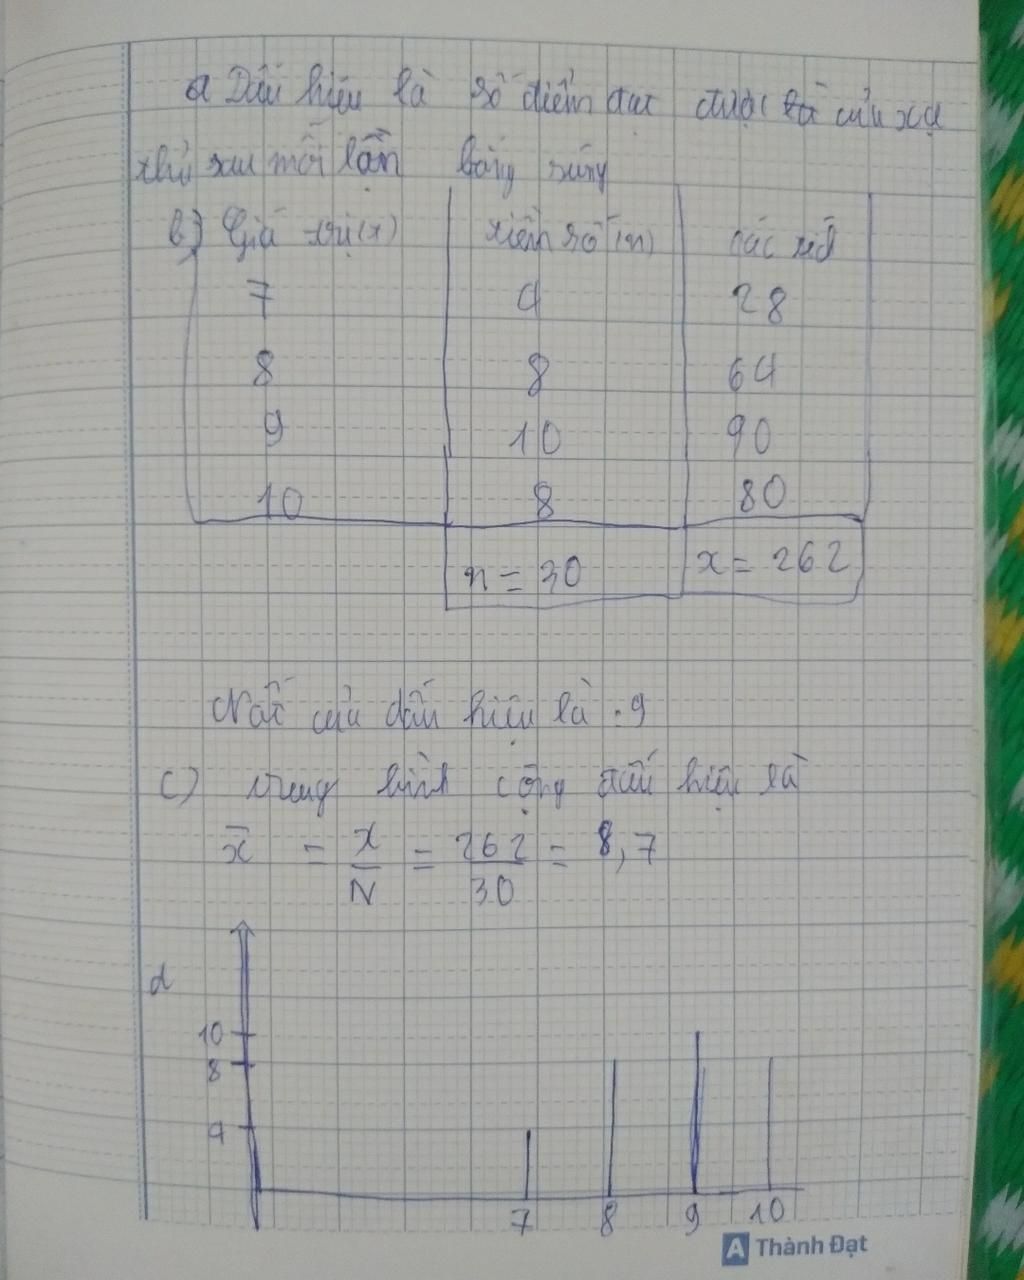 a Dấu hiệu là số điểm đạt được của xạ
thủ sau mỗi lần bắng súng
b) Giá trị (x) tiền số (n) các tích
7 4 28
8 8 64
9 10 90
10 8 80
n = 30 x = 262
Mốt của dấu hiệu là : 9
c) trung bình cộng dấu hiệu là
x̄ = x/N = 262/30 = 8,7
d
10
8
4
7 8 9 10
A Thành Đạt